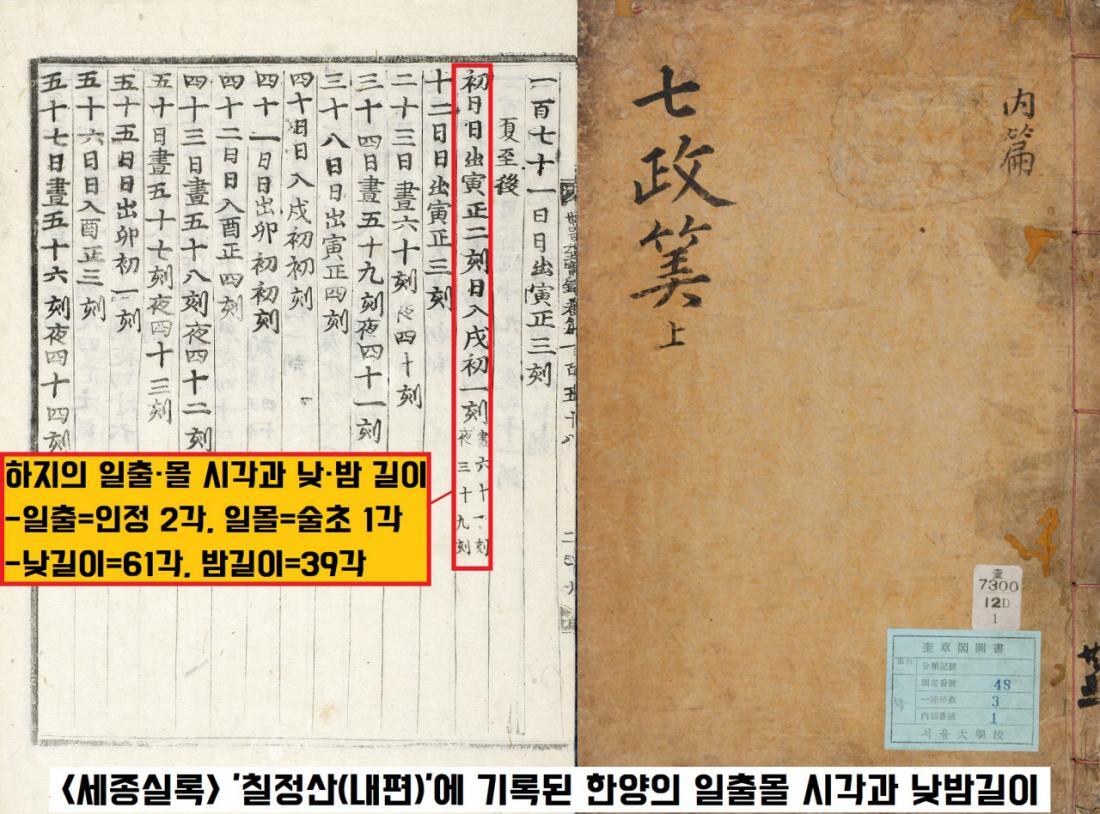 一百七十一日日出寅正三刻
夏至後
初日日出寅正二刻日入戌初一刻 晝六十一刻 夜三十九刻
十二日日出寅正三刻
二十三日晝六十刻夜四十刻
三十四日晝五十九刻夜四十一刻
三十八日日出寅正四刻
四十日日入戌初初刻
四十一日日出卯初初刻
四十二日日入酉正四刻
四十三日晝五十八刻夜四十二刻
五十日晝五十七刻夜四十三刻
五十五日日出卯初一刻
五十六日日入酉正三刻
五十七日晝五十六刻夜四十四刻
하지의 일출·몰 시각과 낮·밤 길이
-일출=인정 2각, 일몰=술초 1각
-낮길이=61각, 밤길이=39각
内篇
七政筭 上
奎
7300
12D
1
奎章閣圖書
分類記號
圖書番號 48
一部冊數 3
內訳番號 1
서울大學校
<세종실록> '칠정산(내편)'에 기록된 한양의 일출몰 시각과 낮밤길이